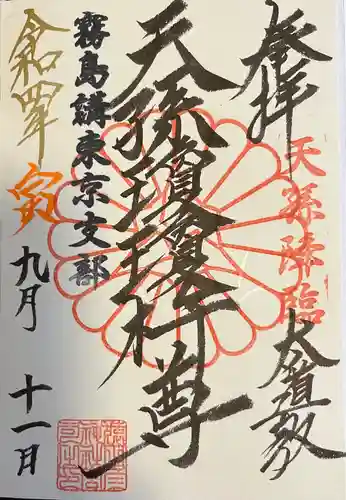 奉拝
天孫降臨
大道教
天孫瓊瓊杵尊
霧島講東京支部
令和四年
寅
九月 十一日